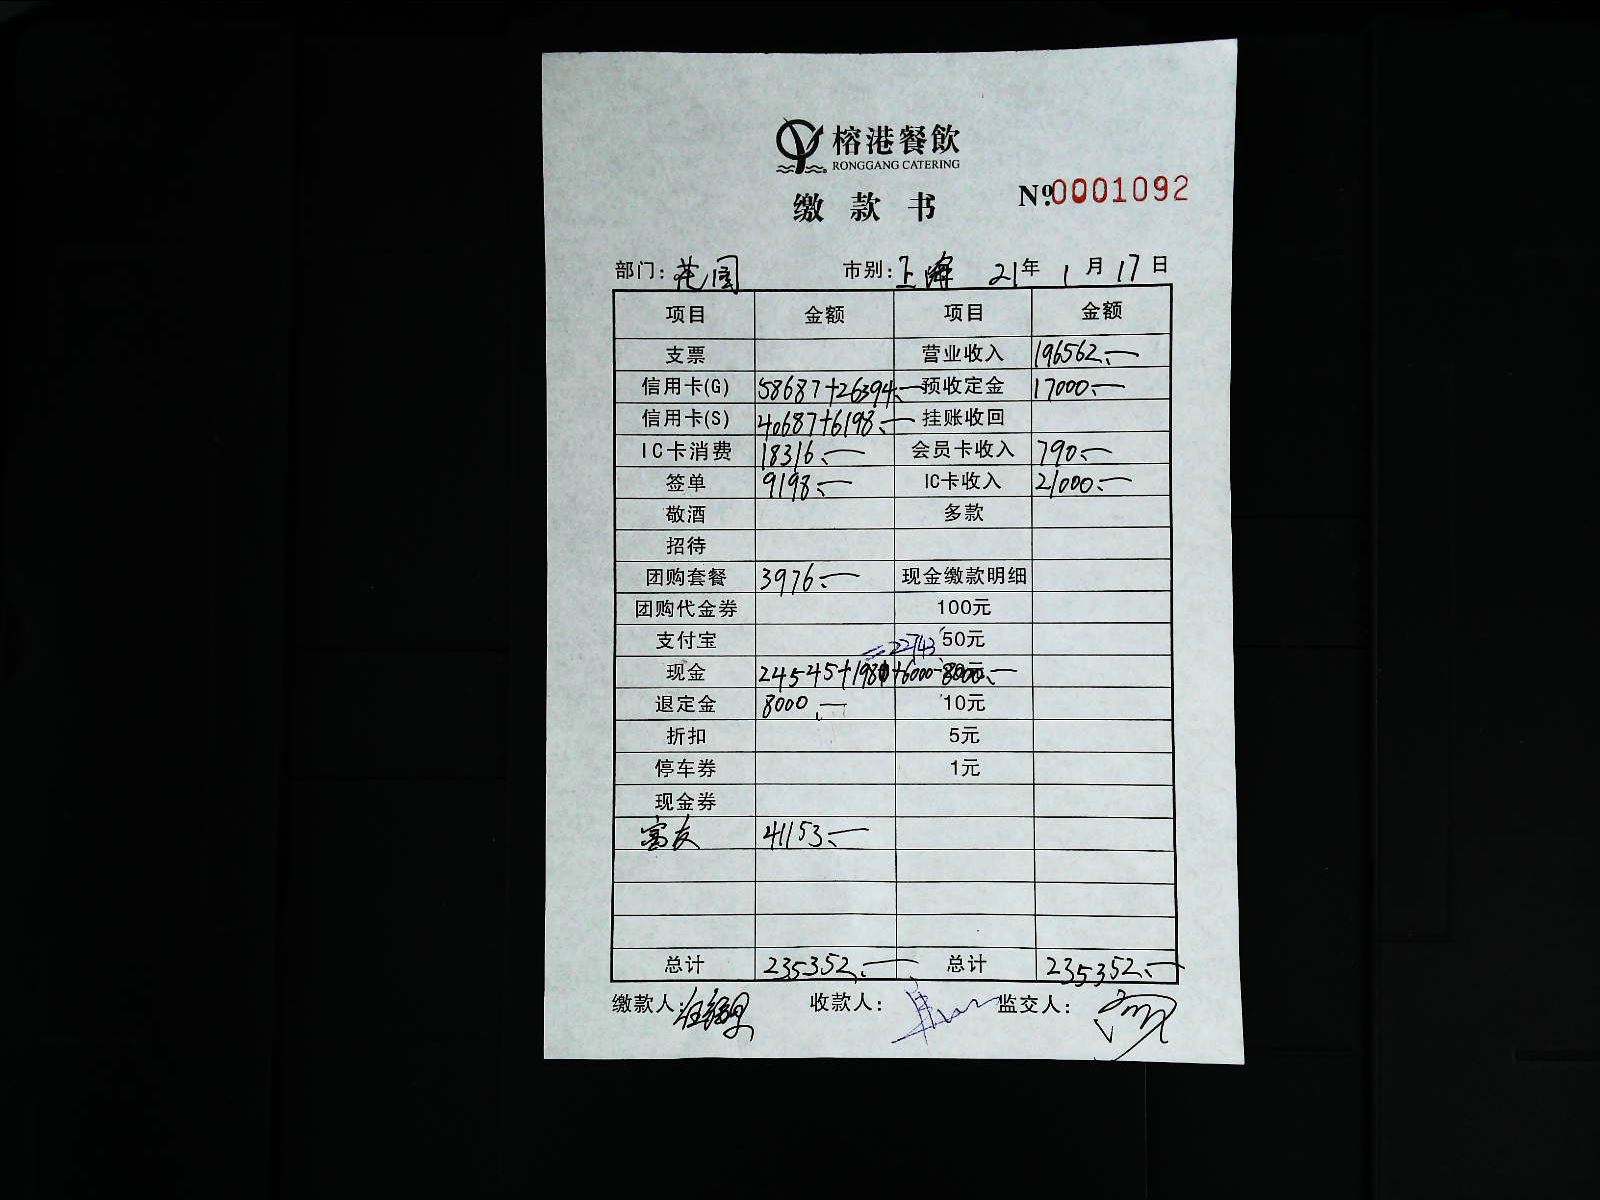 榕港餐飲
RONGGANG CATERING
缴款书 №0001092
部门: 花园 市别: 上海 21年 1月 17日
项目 金额 项目 金额
支票 营业收入 196562.—
信用卡(G) 58687+26394.— 预收定金 17000.—
信用卡(S) 40687+6198.— 挂账收回
IC卡消费 18316.— 会员卡收入 790.—
签单 9198.— IC卡收入 21000.—
敬酒 多款
招待
团购套餐 3976.— 现金缴款明细
团购代金券 100元
支付宝 =22743 50元
现金 24545+198+6000-8000.— 20元
退定金 8000.— 10元
折扣 5元
停车券 1元
现金券
富友 41153.—
总计 235352.— 总计 235352.—
缴款人: 收款人: 监交人: